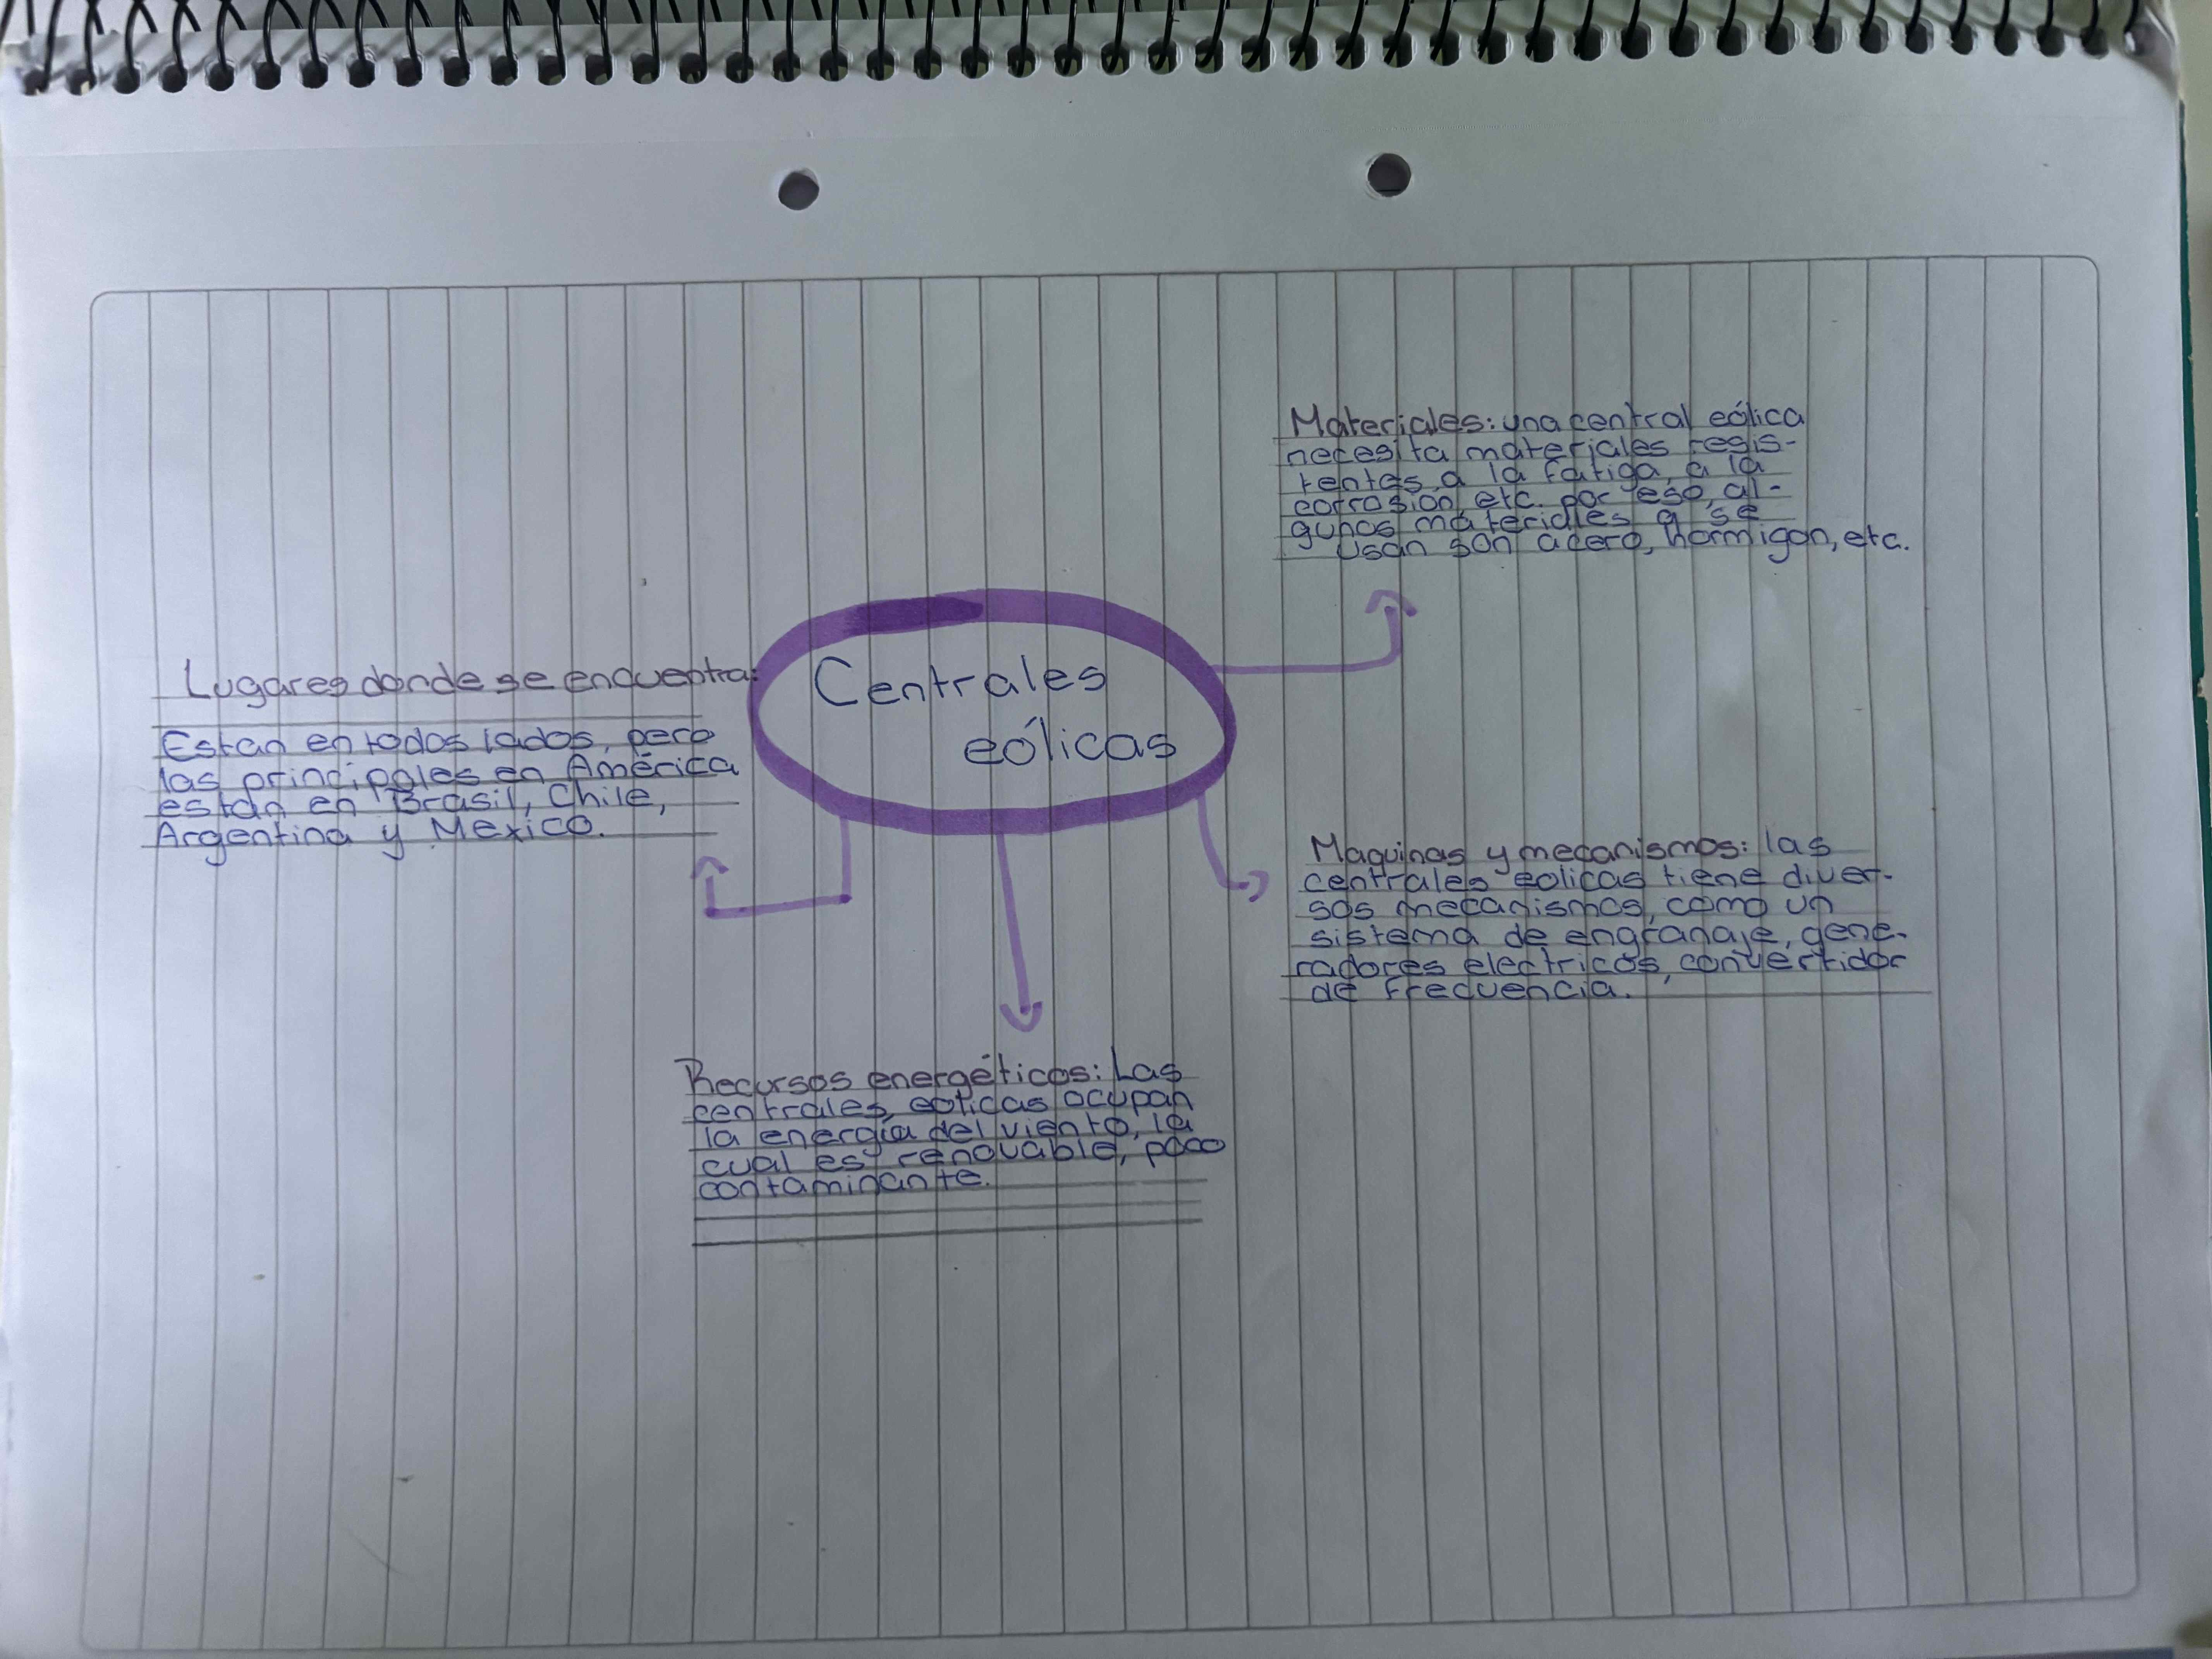 Materiales: una central eólica
necesita materiales resis-
tentes a la fatiga, a la
corrosión, etc. por eso, al-
gunos materiales q se
usan son acero, hormigon, etc.
Centrales
eólicas
Lugares donde se encuentra:
Estan en todos lados, pero
las principales en América
estan en Brasil, Chile,
Argentina y Mexico.
Maquinas y mecanismos: las
centrales eolicas tiene diver-
sos mecanismos, como un
sistema de engranaje, gene-
radores electricos, convertidor
de frecuencia.
Recursos energéticos: Las
centrales eolicas ocupan
la energía del viento, la
cual es renovable, poco
contaminante.